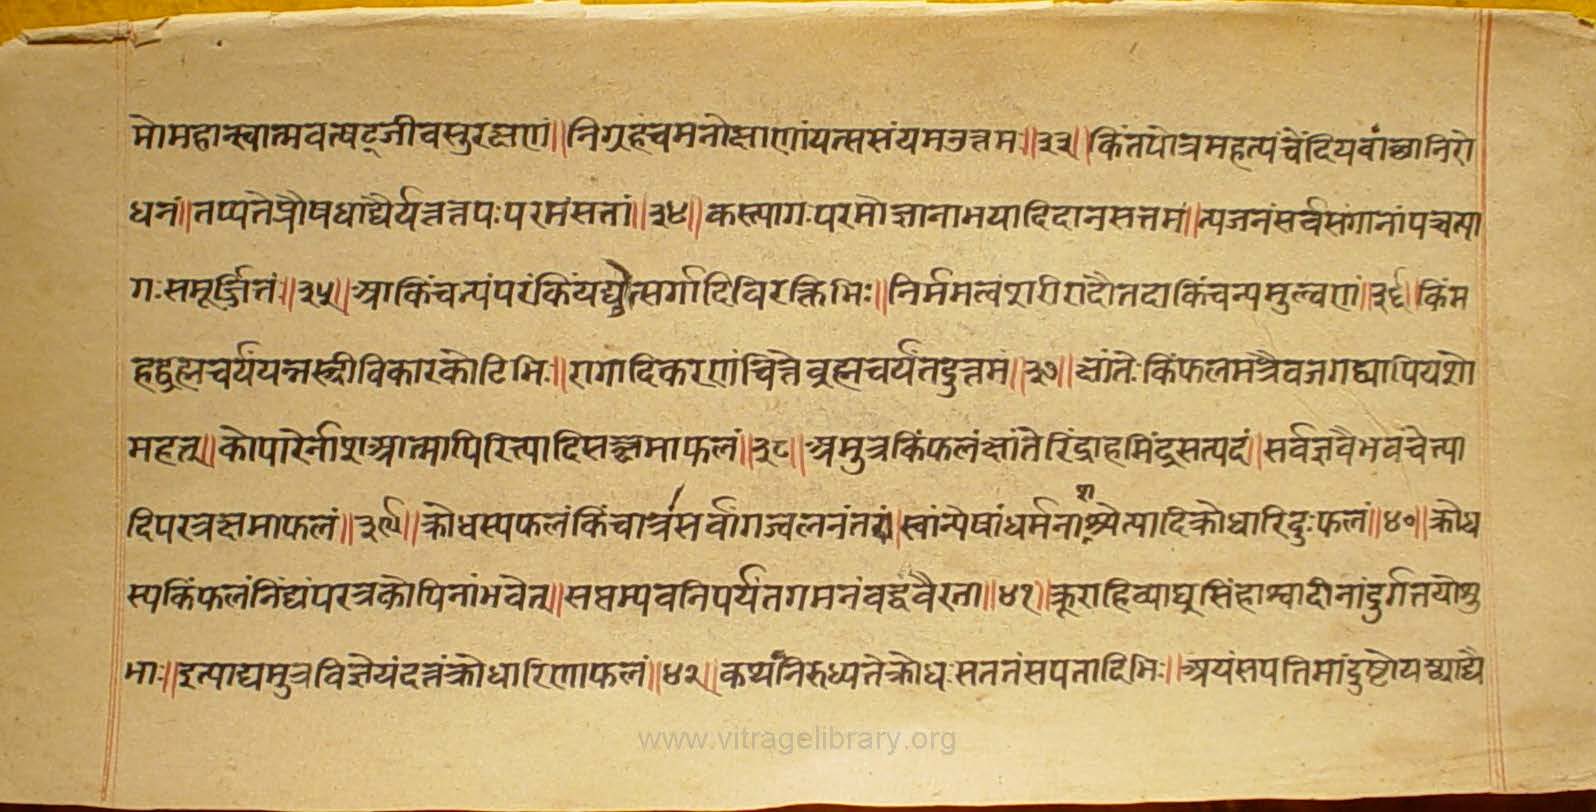 मोमहान्स्वात्मवत्षट्जीवसुरक्षणं॥निग्रहंचमनोक्षाणांयत्ससंयमउत्तमः॥३३॥किंतपोत्रमहत्पंचेंद्रियवांछानिरो
धनं॥तप्यतेप्रौषधाद्यैर्यत्तत्तपःपरमंसतां॥३४॥कस्त्यागःपरमोज्ञानाभयादिदानसत्तमं॥त्यजनंसर्वसंगानांयच्चत्या
गःसमूर्जितः॥३५॥आकिंचन्यंपरंकिंयद्व्युत्सर्गादिविरक्तिभिः॥निर्ममत्वंशरीरादौतदाकिंचन्यमुल्वणं॥३६॥किंम
हद्ब्रह्मचर्यंयन्नस्त्रीविकारकोटिभिः॥रागादिकरणंचित्तेब्रह्मचर्यंतदुत्तमं॥३७॥क्षांतेःकिंफलमत्रैवजगद्व्यापियशो
महत्॥कोपारेर्नाशआत्माप्तिरित्यादिसत्क्षमाफलं॥३८॥अमुत्रकिंफलंक्षांतेरिंद्राहमिंद्रसत्पदं॥सर्वज्ञवैभवंचेत्या
दिपरत्रक्षमाफलं॥३९॥क्रोधस्यफलंकिंचात्रसर्वांगज्वलनंतरां॥स्वान्येषांधर्मनाशश्चेत्यादिक्रोधारिदुःफलं॥४०॥क्रोध
स्यकिंफलंनिंद्यंपरत्रकोपिनांभवेत्॥सप्तम्यवनिपर्यंतगमनंवद्वंवैरता॥४१॥क्रूराहिव्याघ्रसिंहाश्वादीनांदुर्गतयोशु
भाः॥इत्याद्यमुत्रविज्ञेयंदत्तंक्रोधारिणाफलं॥४२॥कथंनिरुध्यतेक्रोधःसततंसयतादिभिः॥अयंसपतिमांदुष्टोयद्याद्यै
www.vitragelibrary.org